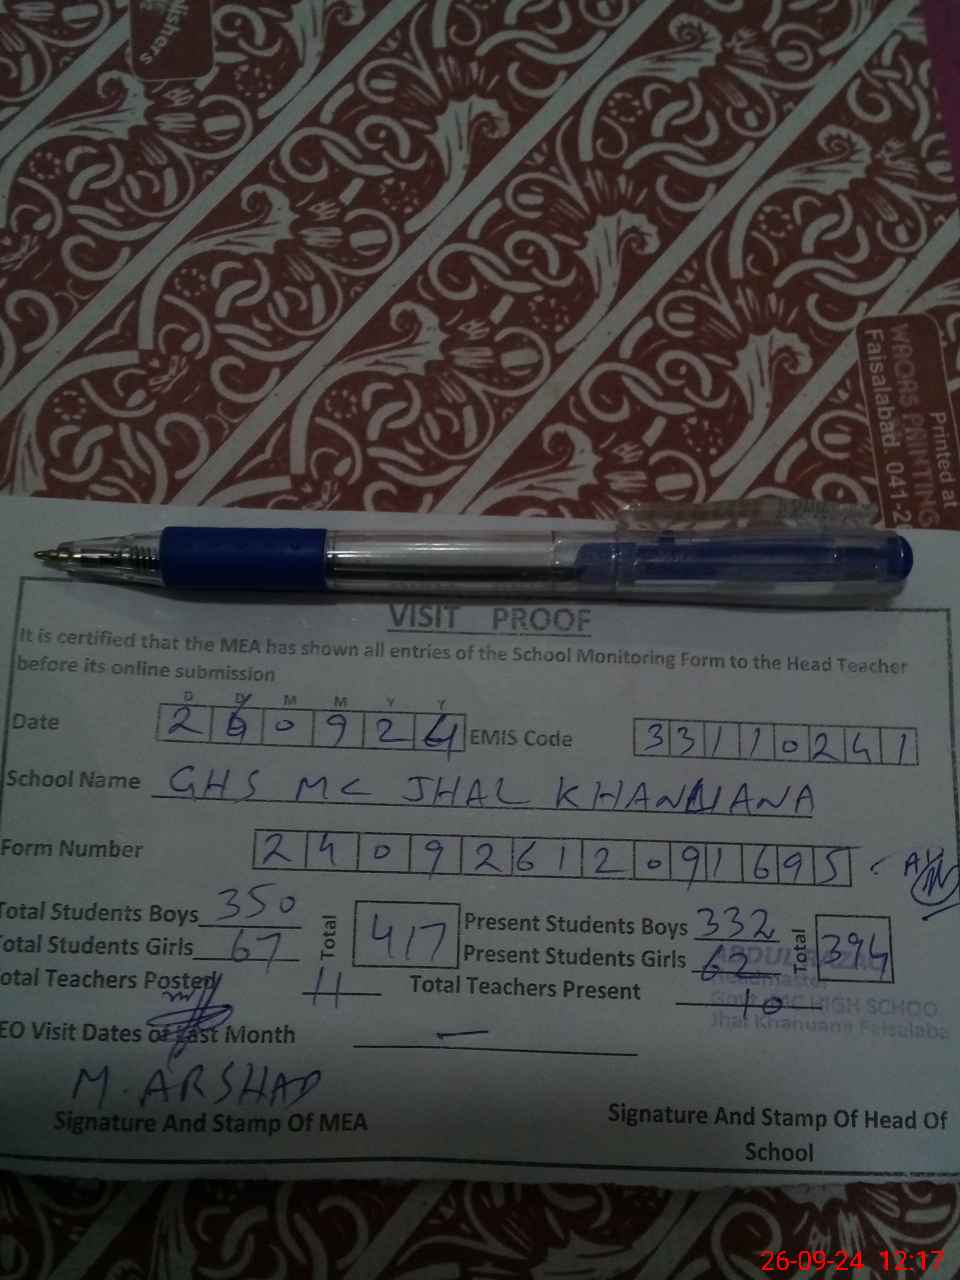 lishers
Printed at
WAQAS PRINTING
Faisalabad. 041-2
VISIT PROOF
It is certified that the MEA has shown all entries of the School Monitoring Form to the Head Teacher
before its online submission
D D M M Y Y
Date 260924 EMIS Code 33110241
School Name GHS MC JHAL KHANUANA
Form Number 24092612091695
Total Students Boys 350 Total 417 Present Students Boys 332 Total 394
otal Students Girls 67 Present Students Girls 62
otal Teachers Posted 11 Total Teachers Present 10
ABDUL
Headmaster
Govt. MC HIGH SCHOO
Jhal Khanuana Faisalaba
EO Visit Dates of Last Month —
M. ARSHAD
Signature And Stamp Of MEA
Signature And Stamp Of Head Of
School
26-09-24 12:17